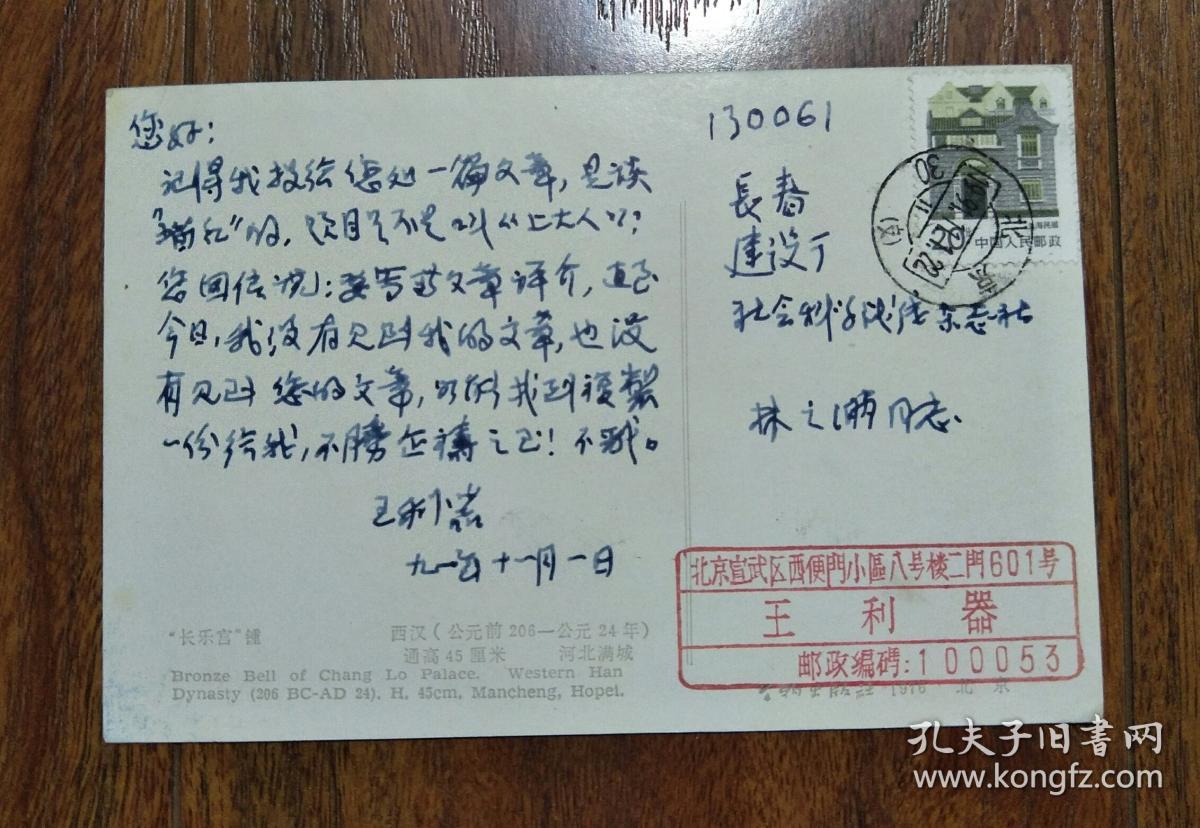 您好：
记得我投给您处一篇文章，是谈
"描红"的，题目是不是叫《上大人》？
您回信说：要写文章评介，直至
今日，我没有见到我的文章，也没
有见到您的文章，以能找到複製
一份给我，不勝企禱之至！不戬。
王利器
九一年十一月一日
130061
長春
建设厅
社会科学战线杂志社
林之满同志
中国人民邮政
北京
北京宣武区西便門小區八号楼二門601号
王利器
邮政编碼:100053
"长乐宫"锺
西汉（公元前206—公元24年）
通高45厘米 河北满城
Bronze Bell of Chang Lo Palace. Western Han
Dynasty (206 BC-AD 24), H. 45cm, Mancheng, Hopei.
文物出版社 1976 北京
孔夫子旧書网
www.kongfz.com